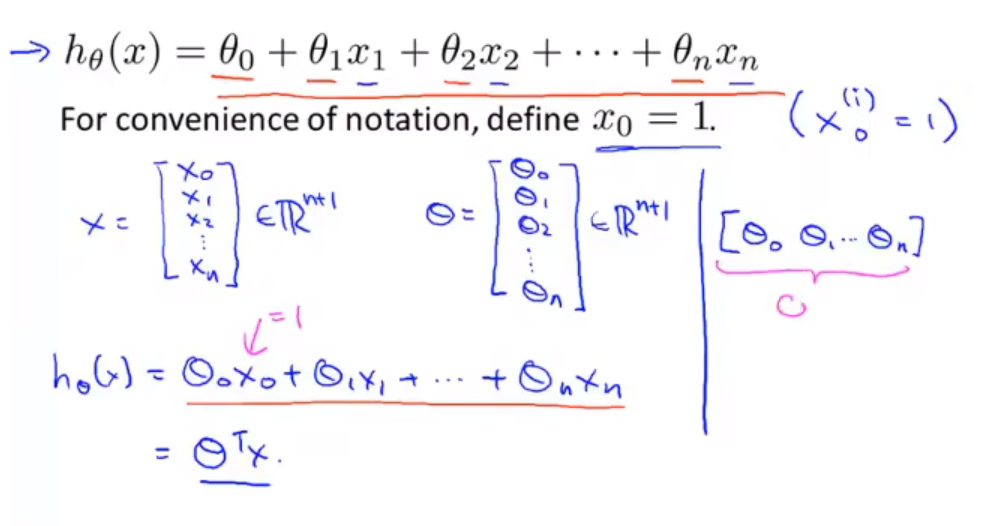 → hθ(x) = θ₀ + θ₁x₁ + θ₂x₂ + ⋯ + θₙxₙ
For convenience of notation, define x₀ = 1. (x₀⁽ⁱ⁾ = 1)
x = [x₀ x₁ x₂ ⋮ xₙ] ∈ ℝⁿ⁺¹ θ = [θ₀ θ₁ θ₂ ⋮ θₙ] ∈ ℝⁿ⁺¹ [θ₀ θ₁ ⋯ θₙ]
= 1
hθ(x) = θ₀x₀ + θ₁x₁ + ⋯ + θₙxₙ
= θᵀx.